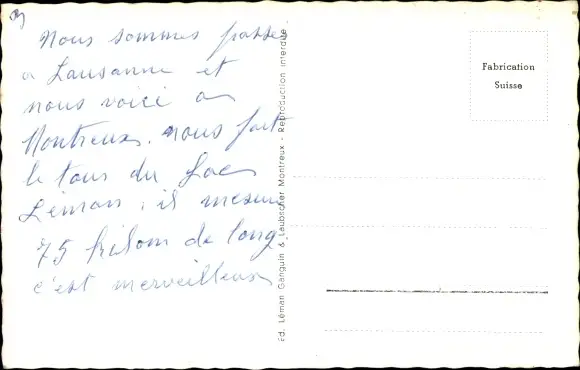 Nous sommes passé
a Lausanne et
nous voici a
Montreux. nous fait
le tour du Lac
Léman, il mesure
75 kilom de long
c'est merveilleux
Ed. Léman Ganguin & Laubscher Montreux - Reproduction interdite
Fabrication
Suisse